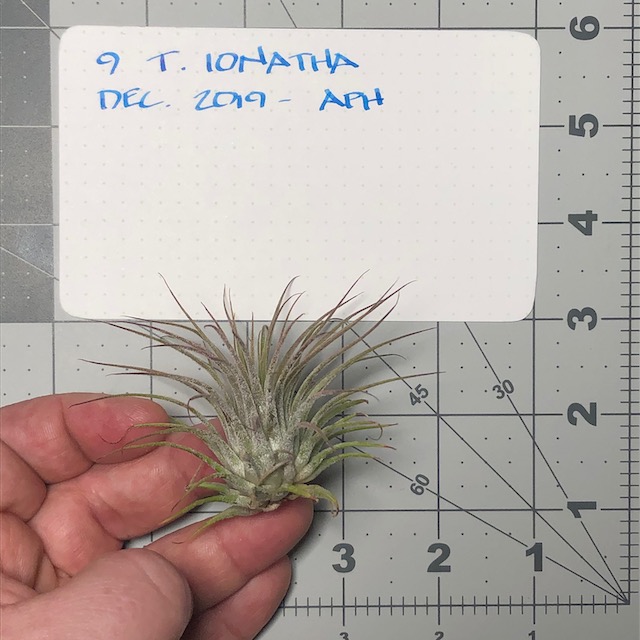 9 T. IONATHA
DEC. 2019 - APH
6
5
4
3
2
1
45
30
60
3 2 1
3 2 1